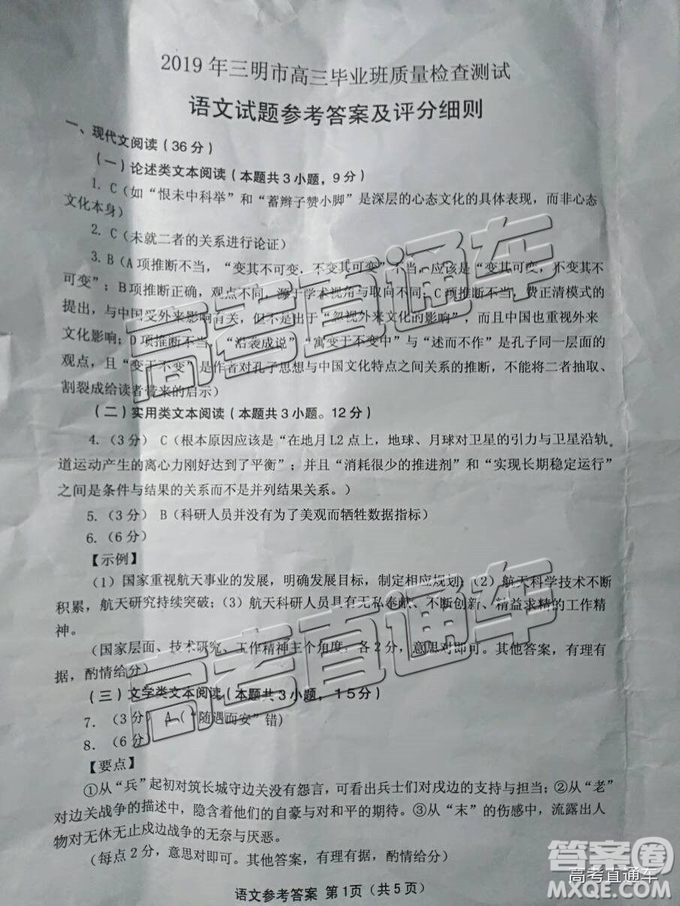 2019 年三明市高三毕业班质量检查测试
语文试题参考答案及评分细则
一、现代文阅读（36 分）
（一）论述类文本阅读（本题共 3 小题，9 分）
1. C（如“恨未中科举”和“蓄辫子赞小脚”是深层的心态文化的具体表现，而非心态
文化本身）
2. C（未就二者的关系进行论证）
3. B（A 项推断不当，“变其不可变，不变其可变”不当，应该是“变其可变，不变其不
可变”；B项推断正确，观点不同，源于学术视角与取向不同；C 项推断不当，费正清模式的
提出，与中国受外来影响有关，但不是出于“忽视外来文化的影响”，而且中国也重视外来
文化影响；D 项推断不当，“沿袭成说”“寓变于不变中”与“述而不作”是孔子同一层面的
观点，且“变于不变”是作者对孔子思想与中国文化特点之间关系的推断，不能将二者抽取、
割裂成给读者带来的启示）
（二）实用类文本阅读（本题共 3 小题。12 分）
4. （3 分） C（根本原因应该是“在地月 L2 点上，地球、月球对卫星的引力与卫星沿轨
道运动产生的离心力刚好达到了平衡”；并且“消耗很少的推进剂”和“实现长期稳定运行”
之间是条件与结果的关系而不是并列结果关系。）
5. （3 分） B（科研人员并没有为了美观而牺牲数据指标）
6. （6 分）
【示例】
（1）国家重视航天事业的发展，明确发展目标，制定相应规划；（2）航天科学技术不断
积累，航天研究持续突破；（3）航天科研人员具有无私奉献、不断创新、精益求精的工作精
神。
（国家层面、技术研究、工作精神三个角度，各 2 分，意思对即可。其他答案，有理有
据，酌情给分）
（三）文学类文本阅读（本题共 3 小题，15 分）
7. （3 分） A（“随遇而安”错）
8. （6 分）
【要点】
①从“兵”起初对筑长城守边关没有怨言，可看出兵士们对戍边的支持与担当；②从“老”
对边关战争的描述中，隐含着他们的自豪与对和平的期待。③从“末”的伤感中，流露出人
物对无休无止戍边战争的无奈与厌恶。
（每点 2 分，意思对即可。其他答案，有理有据，酌情给分）
语文参考答案 第 1 页（共 5 页）
高考直通车
高考直通车
高考直通车
答案圈
MXQE.COM